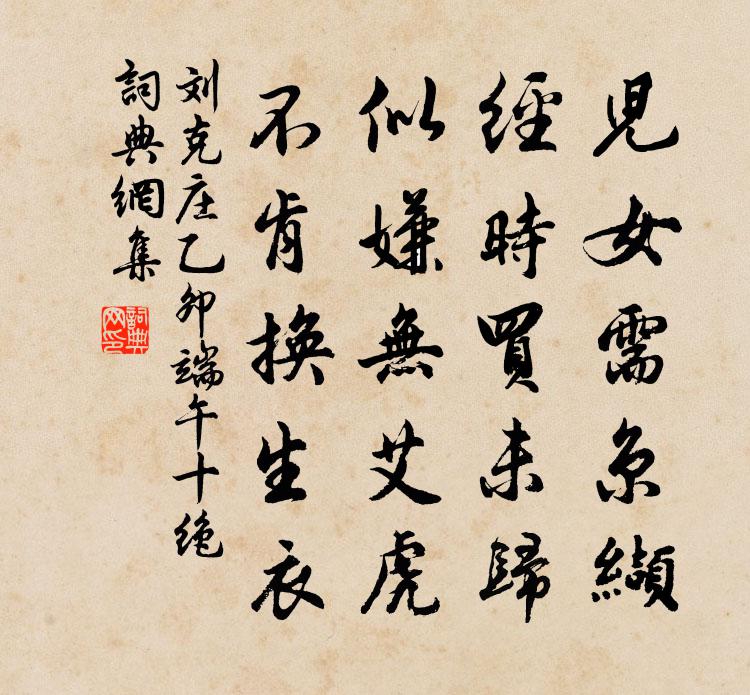 兒女需糸纈
經時買未歸
似嫌無艾虎
不肯換生衣
刘克庄乙卯端午十绝
詞典網集
詞典网印